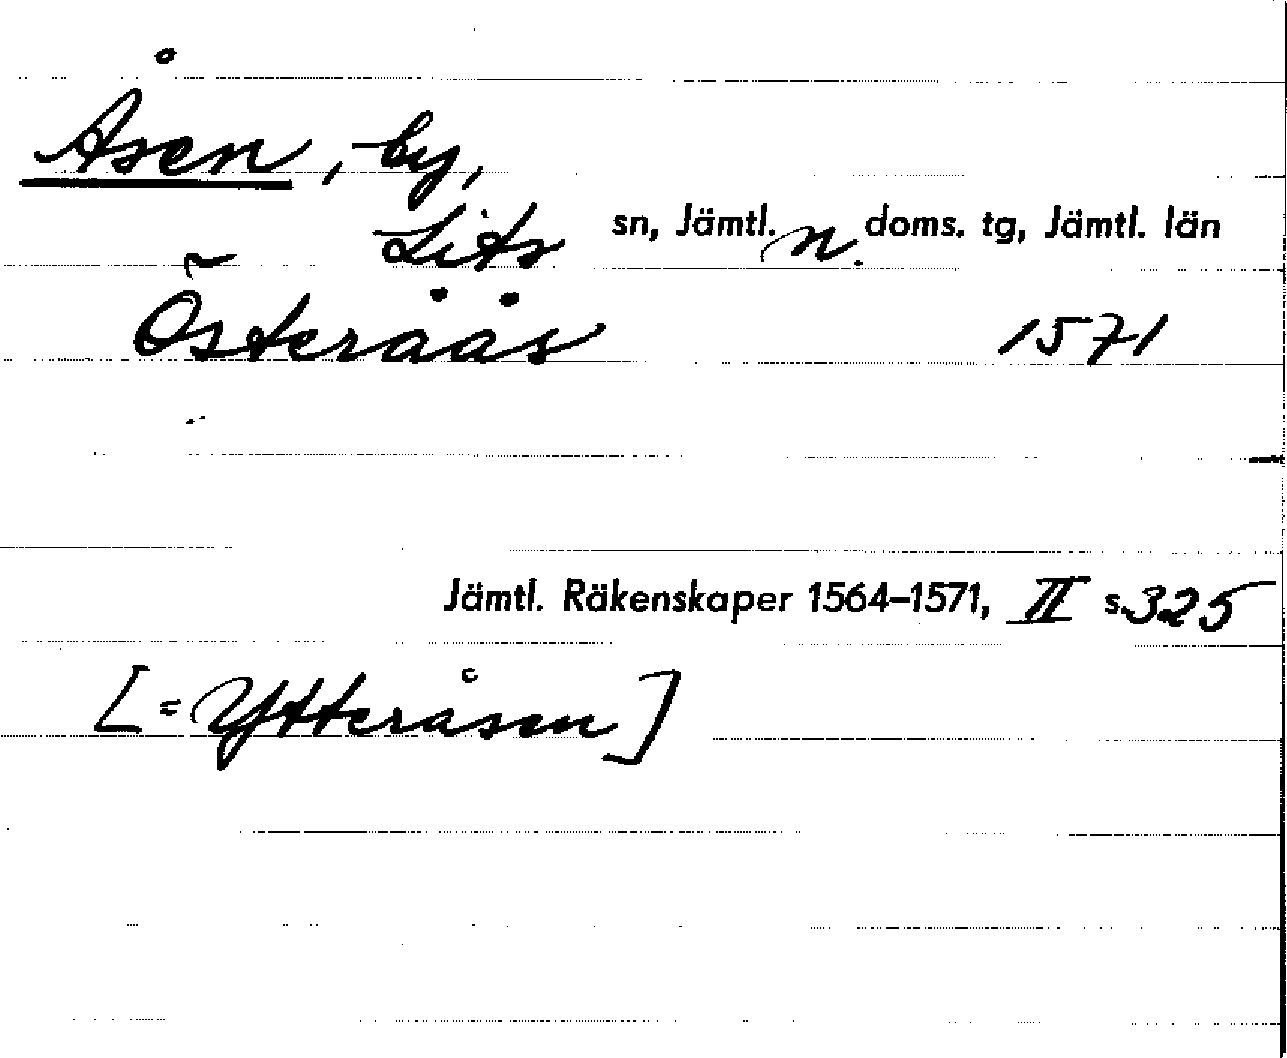 Åsen, by,
Lits sn, Jämtl. n. doms. tg, Jämtl. län
Österåås 1571
Jämtl. Räkenskaper 1564–1571, II s. 325
[= Ytteråsen]